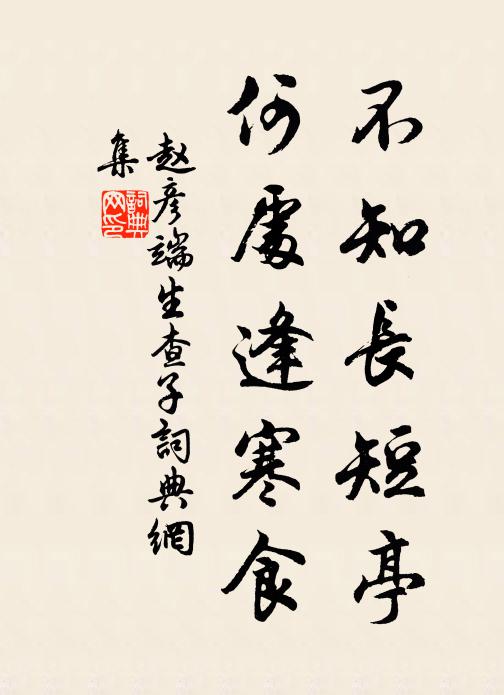 不知長短亭
何處逢寒食
赵彦端生查子詞典網
集
詞典
网印